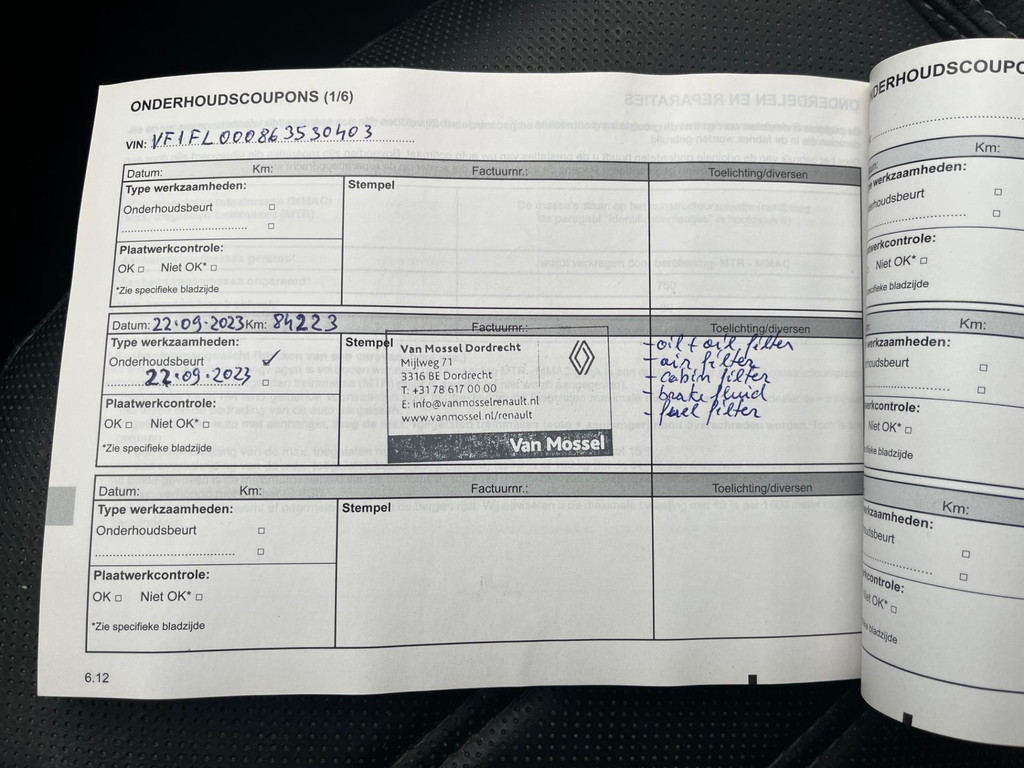 ONDERHOUDSCOUPONS (1/6)
VIN: VF1FL000863530403
Datum: Km: Factuurnr.: Toelichting/diversen
Type werkzaamheden: Stempel
Onderhoudsbeurt
Plaatwerkcontrole:
OK Niet OK*
*Zie specifieke bladzijde
Datum: 22.09.2023 Km: 84223 Factuurnr.: Toelichting/diversen
Type werkzaamheden: Stempel
Onderhoudsbeurt ✓
22.09.2023
Plaatwerkcontrole:
OK Niet OK*
*Zie specifieke bladzijde
Van Mossel Dordrecht
Mijlweg 71
3316 BE Dordrecht
T: +31 78 617 00 00
E: info@vanmosselrenault.nl
www.vanmossel.nl/renault
Van Mossel
- oil + oil filter
- air filter
- cabin filter
- brake fluid
- fuel filter
Datum: Km: Factuurnr.: Toelichting/diversen
Type werkzaamheden: Stempel
Onderhoudsbeurt
Plaatwerkcontrole:
OK Niet OK*
*Zie specifieke bladzijde
6.12
Km:
werkzaamheden:
Niet OK*
bladzijde
Km:
werkzaamheden:
Niet OK*
bladzijde
Km:
Niet OK*
bladzijde